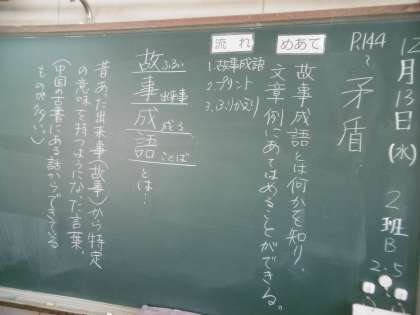 12月13日(水)
2班B
2.5
P.144〜
矛盾
めあて
故事成語とは何かを知り、
文章例にあてはめることができる。
流れ
1.故事成語
2.プリント
3.ふりかえり
故 ふるい
事 出来事
成 成る
語 ことば
とは…
昔あった出来事(故事)から特定
の意味を持つようになった言葉。
(中国の古書にある話からできている
ものが多い。)